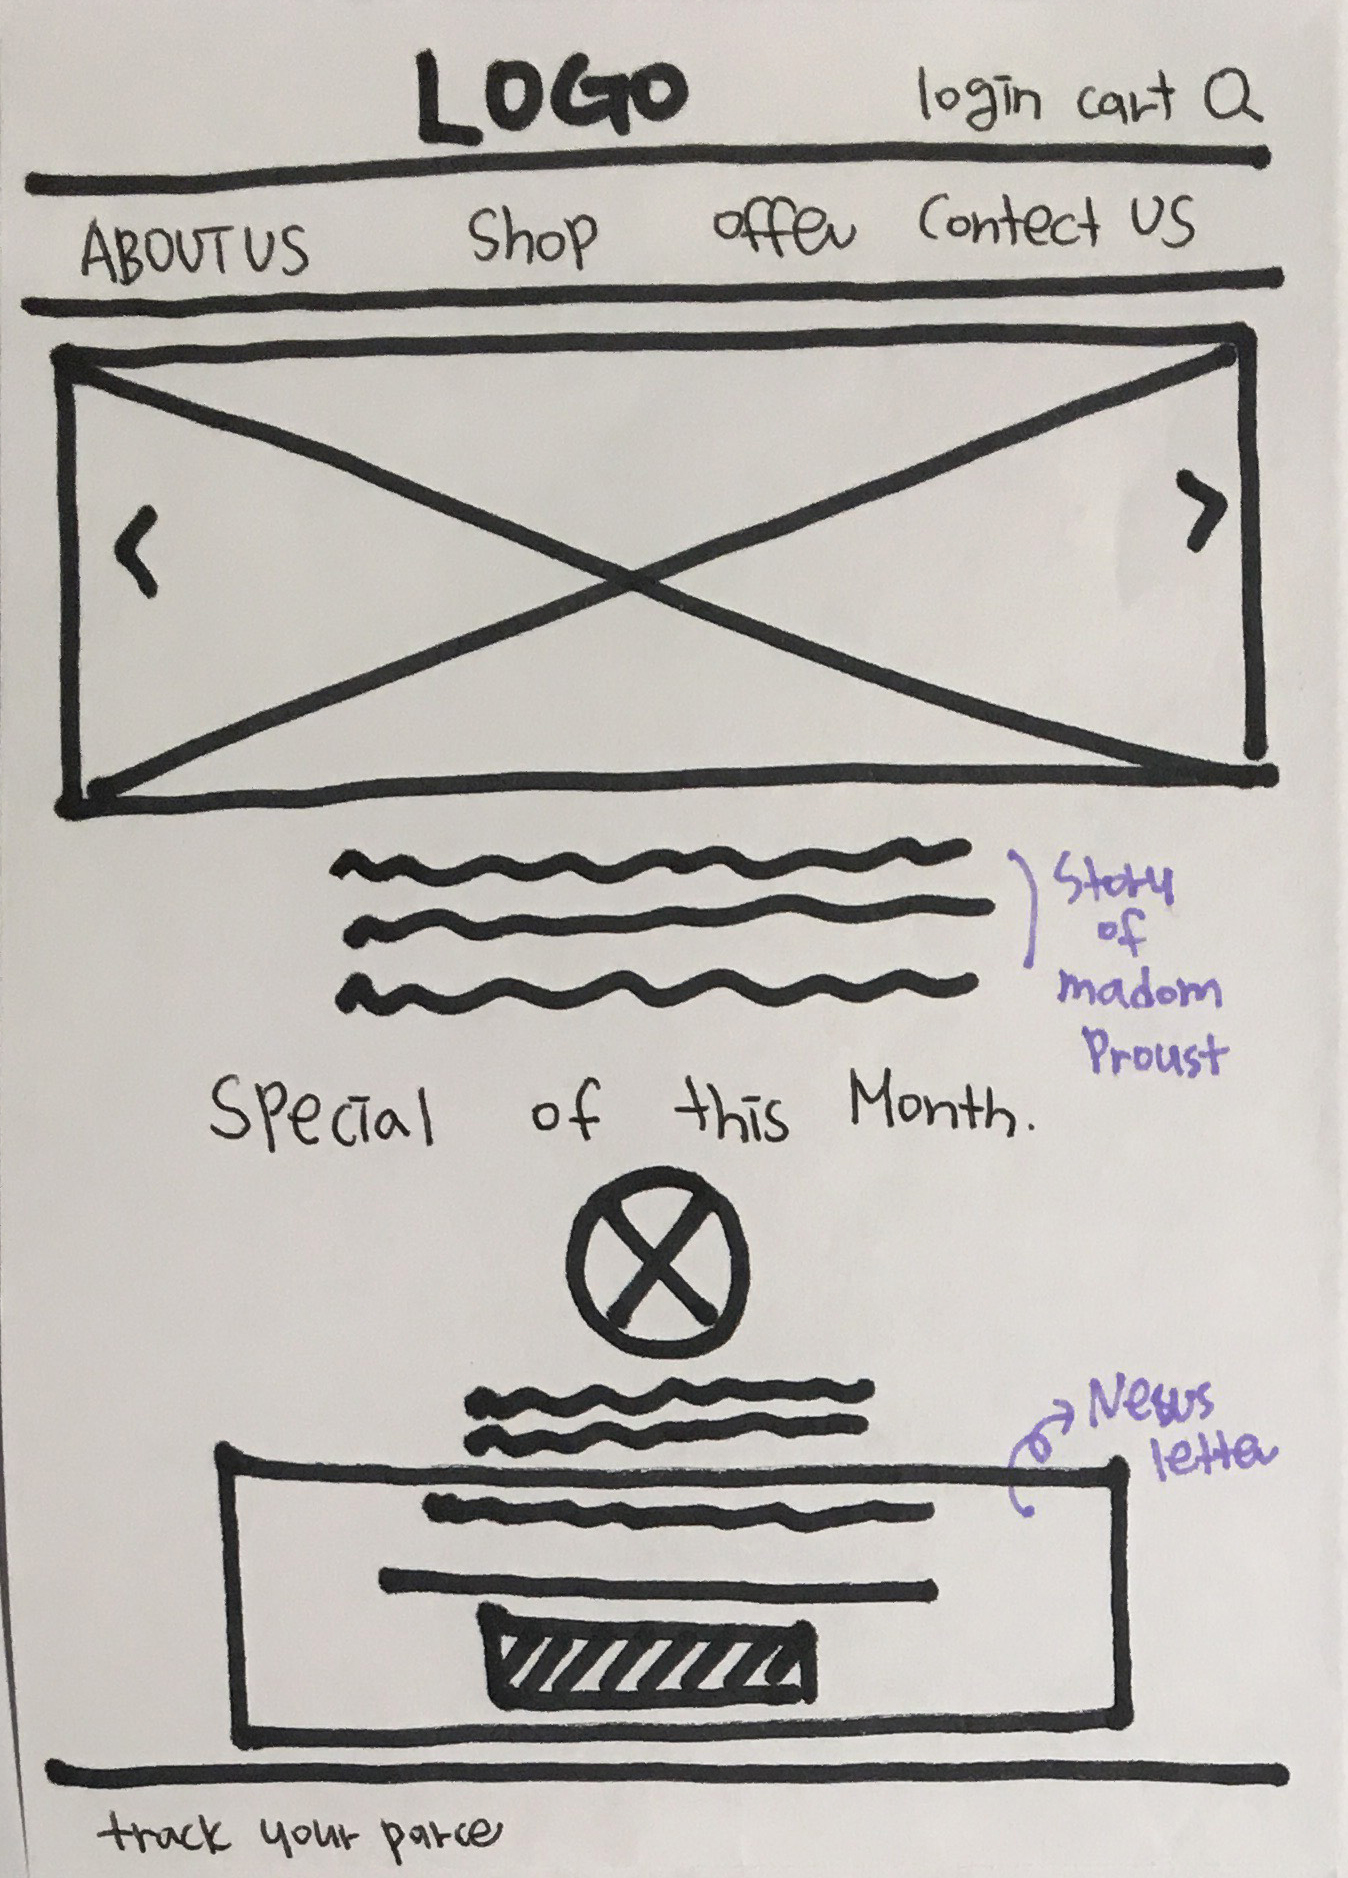 LOGO
login cart
ABOUT US Shop offer Contect US
Story
of
madom
Proust
Special of this Month.
News
letter
track your parce